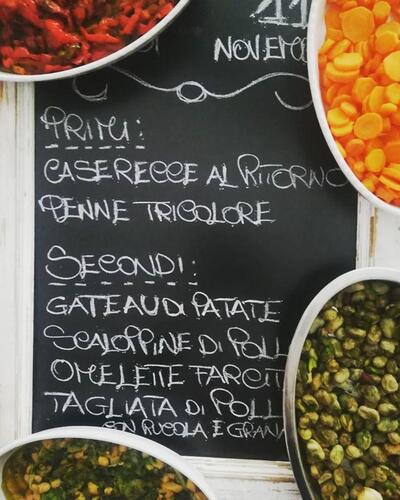 11
NOVEMB
PRIMI:
CASERECCE AL RITORNO
PENNE TRICOLORE
SECONDI:
GATEAU DI PATATE
SCALOPPINE DI POLL
OMELETTE FARCIT
TAGLIATA DI POLL
CON RUCOLA E GRANA